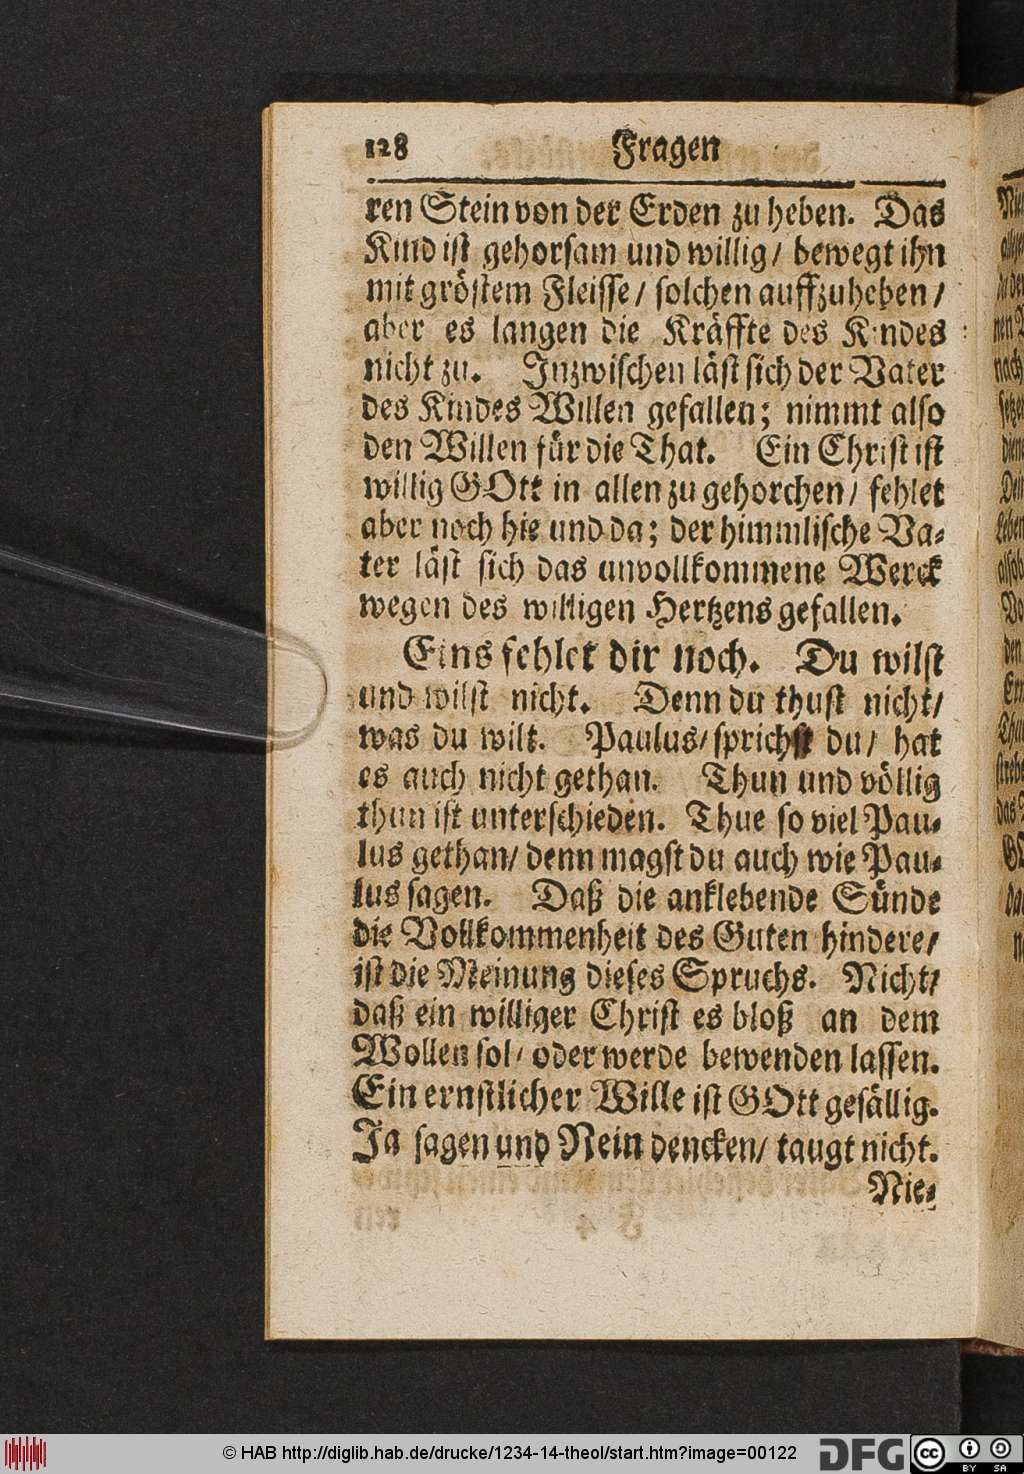 128 Fragen
ren Stein von der Erden zu heben. Das
Kind ist gehorsam und willig/ bewegt ihn
mit gröstem Fleisse/ solchen auffzuheben/
aber es langen die Kräffte des Kindes
nicht zu. Inzwischen läst sich der Vater
des Kindes Willen gefallen; nimmt also
den Willen für die That. Ein Christ ist
willig GOtt in allen zu gehorchen/ fehlet
aber noch hie und da; der himmlische Va-
ter läst sich das unvollkommene Werck
wegen des willigen Hertzens gefallen.
Eins fehlet dir noch. Du wilst
und wilst nicht. Denn du thust nicht/
was du wilt. Paulus/ sprichst du/ hat
es auch nicht gethan. Thun und völlig
thun ist unterschieden. Thue so viel Pau-
lus gethan/ denn magst du auch wie Pau-
lus sagen. Daß die anklebende Sünde
die Vollkommenheit des Guten hindere/
ist die Meinung dieses Spruchs. Nicht/
daß ein williger Christ es bloß an dem
Wollen sol/ oder werde bewenden lassen.
Ein ernstlicher Wille ist GOtt gefällig.
Ja sagen und Nein dencken/ taugt nicht.
Nie-
© HAB http://diglib.hab.de/drucke/1234-14-theol/start.htm?image=00122
DFG
cc BY SA